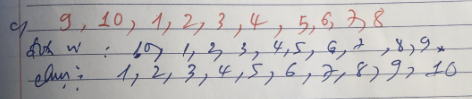 c) 9, 10, 1, 2, 3, 4, 5, 6, 7, 8
: 10, 1, 2, 3, 4, 5, 6, 7, 8, 9.
: 1, 2, 3, 4, 5, 6, 7, 8, 9, 10